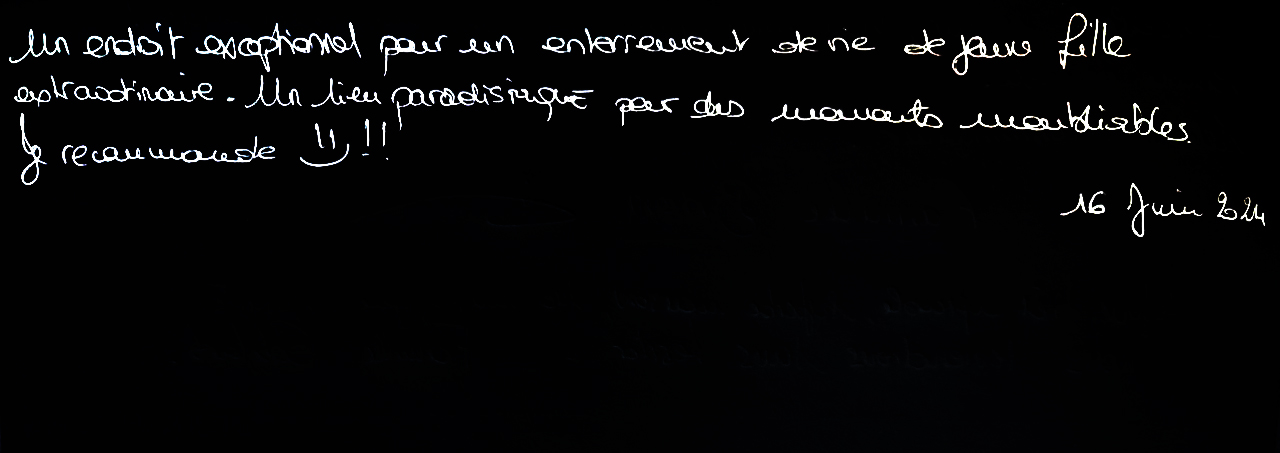 Un endroit exceptionnel pour un enterrement de vie de jeune fille
extraordinaire. Un lieu paradisiaque pour des moments inoubliables.
Je recommande !!
16 Juin 2024